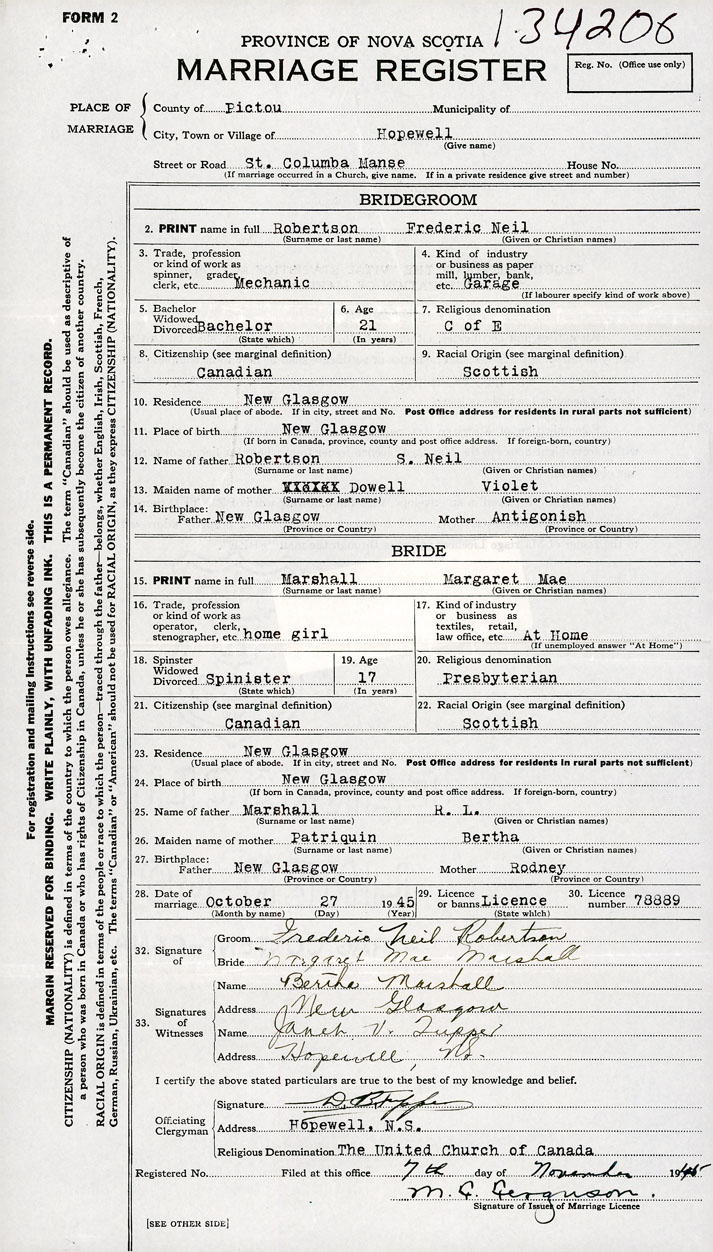 FORM 2
134206
PROVINCE OF NOVA SCOTIA
MARRIAGE REGISTER
Reg. No. (Office use only)
PLACE OF MARRIAGE
County of Pictou Municipality of
City, Town or Village of Hopewell
(Give name)
Street or Road St. Columba Manse House No.
(If marriage occurred in a Church, give name. If in a private residence give street and number)
BRIDEGROOM
2. PRINT name in full Robertson Frederic Neil
(Surname or last name) (Given or Christian names)
3. Trade, profession or kind of work as spinner, grader, clerk, etc. Mechanic
4. Kind of industry or business as paper mill, lumber, bank, etc. Garage
(If labourer specify kind of work above)
5. Bachelor Widowed Divorced Bachelor
(State which)
6. Age 21
(In years)
7. Religious denomination
C of E
8. Citizenship (see marginal definition)
Canadian
9. Racial Origin (see marginal definition)
Scottish
10. Residence New Glasgow
(Usual place of abode. If in city, street and No. Post Office address for residents in rural parts not sufficient)
11. Place of birth New Glasgow
(If born in Canada, province, county and post office address. If foreign-born, country)
12. Name of father Robertson S. Neil
(Surname or last name) (Given or Christian names)
13. Maiden name of mother Dowell Violet
(Surname or last name) (Given or Christian names)
14. Birthplace:
Father New Glasgow Mother Antigonish
(Province or Country) (Province or Country)
BRIDE
15. PRINT name in full Marshall Margaret Mae
(Surname or last name) (Given or Christian names)
16. Trade, profession or kind of work as operator, clerk, stenographer, etc. home girl
17. Kind of industry or business as textiles, retail, law office, etc. At Home
(If unemployed answer "At Home")
18. Spinster Widowed Divorced Spinister
(State which)
19. Age 17
(In years)
20. Religious denomination
Presbyterian
21. Citizenship (see marginal definition)
Canadian
22. Racial Origin (see marginal definition)
Scottish
23. Residence New Glasgow
(Usual place of abode. If in city, street and No. Post Office address for residents in rural parts not sufficient)
24. Place of birth New Glasgow
(If born in Canada, province, county and post office address. If foreign-born, country)
25. Name of father Marshall R. L.
(Surname or last name) (Given or Christian names)
26. Maiden name of mother Patriquin Bertha
(Surname or last name) (Given or Christian names)
27. Birthplace:
Father New Glasgow Mother Rodney
(Province or Country) (Province or Country)
28. Date of marriage October 27 1945
(Month by name) (Day) (Year)
29. Licence or banns Licence
(State which)
30. Licence number 78889
32. Signature of
Groom Frederic Neil Robertson
Bride Margaret Mae Marshall
33. Signatures of Witnesses
Name Bertha Marshall
Address New Glasgow
Name Janet V. Tupper
Address Hopewell, NS.
I certify the above stated particulars are true to the best of my knowledge and belief.
Officiating Clergyman
Signature D. B. Tupper
Address Hopewell, N.S.
Religious Denomination The United Church of Canada
Registered No. Filed at this office 7th day of November 1945
M. G. Ferguson.
Signature of Issuer of Marriage Licence
[SEE OTHER SIDE]
For registration and mailing instructions see reverse side.
MARGIN RESERVED FOR BINDING. WRITE PLAINLY, WITH UNFADING INK. THIS IS A PERMANENT RECORD.
CITIZENSHIP (NATIONALITY) is defined in terms of the country to which the person owes allegiance. The term "Canadian" should be used as descriptive of
a person who was born in Canada or who has rights of Citizenship in Canada, unless he or she has subsequently become the citizen of another country.
RACIAL ORIGIN is defined in terms of the people or race to which the person—traced through the father—belongs, whether English, Irish, Scottish, French,
German, Russian, Ukrainian, etc. The terms "Canadian" or "American" should not be used for RACIAL ORIGIN, as they express CITIZENSHIP (NATIONALITY).